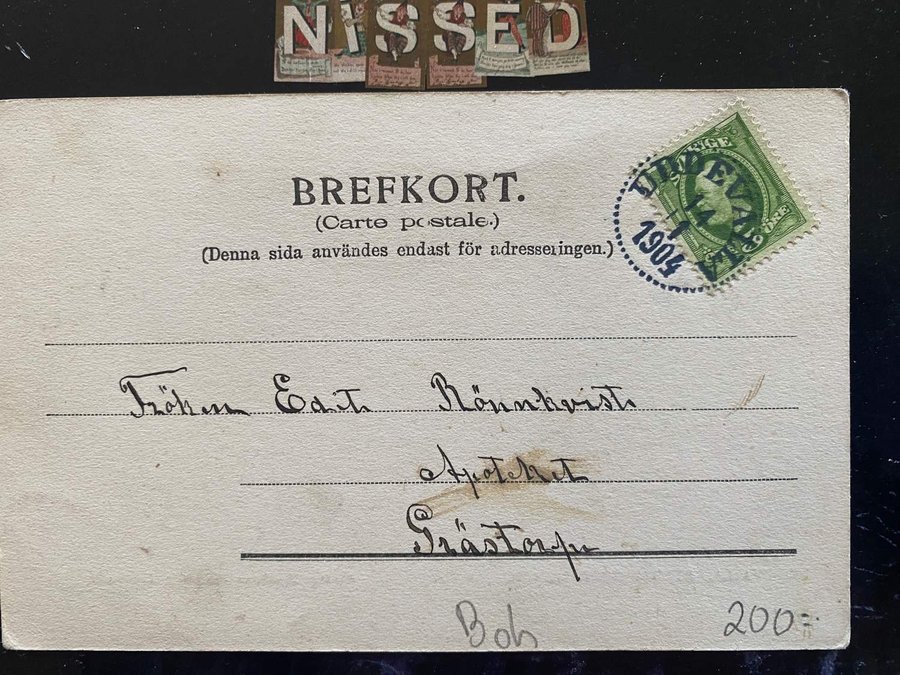 NISSED
BREFKORT.
(Carte postale.)
(Denna sida användes endast för adresseringen.)
UDDEVALLA
14
1
1904
SVERIGE
5 ÖRE
Fröken Edit Rönnkvist
Apoteket
Grästorp
Boh
200:-